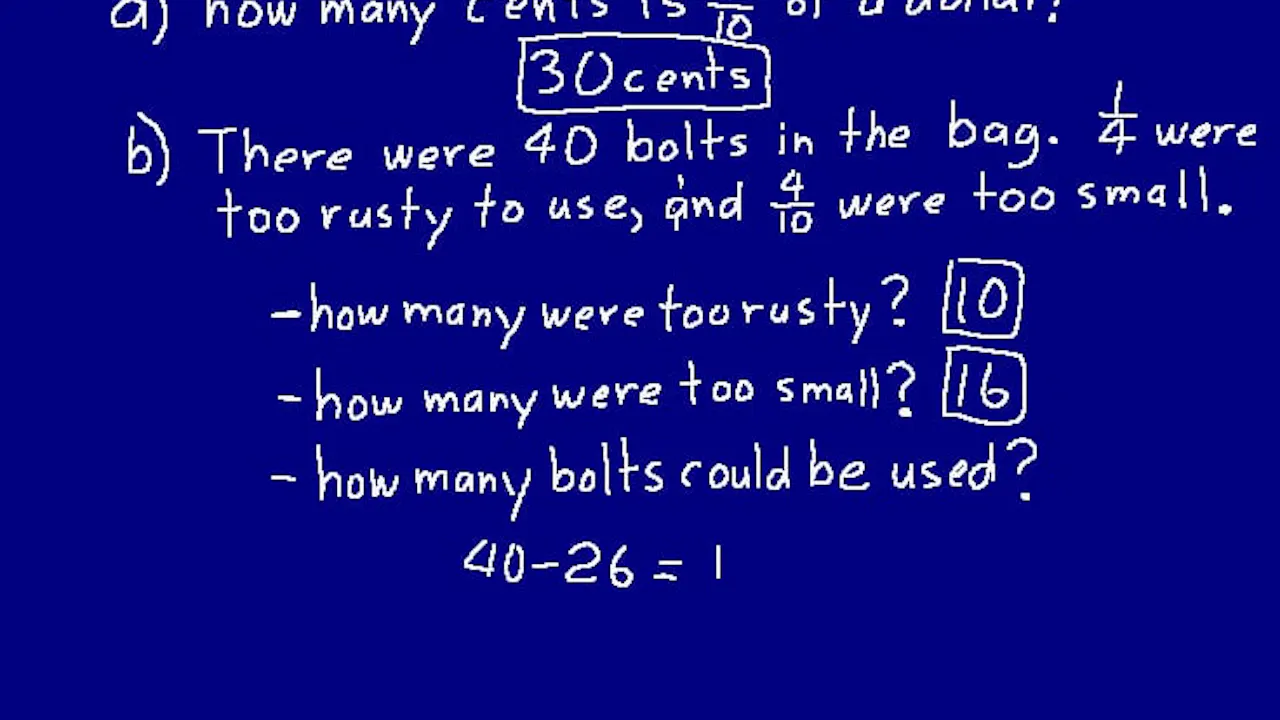 a) how many cents is /10 of a dollar?
30 cents
b) There were 40 bolts in the bag. 1/4 were
too rusty to use, and 4/10 were too small.
- how many were too rusty? 10
- how many were too small? 16
- how many bolts could be used?
40 - 26 = 1